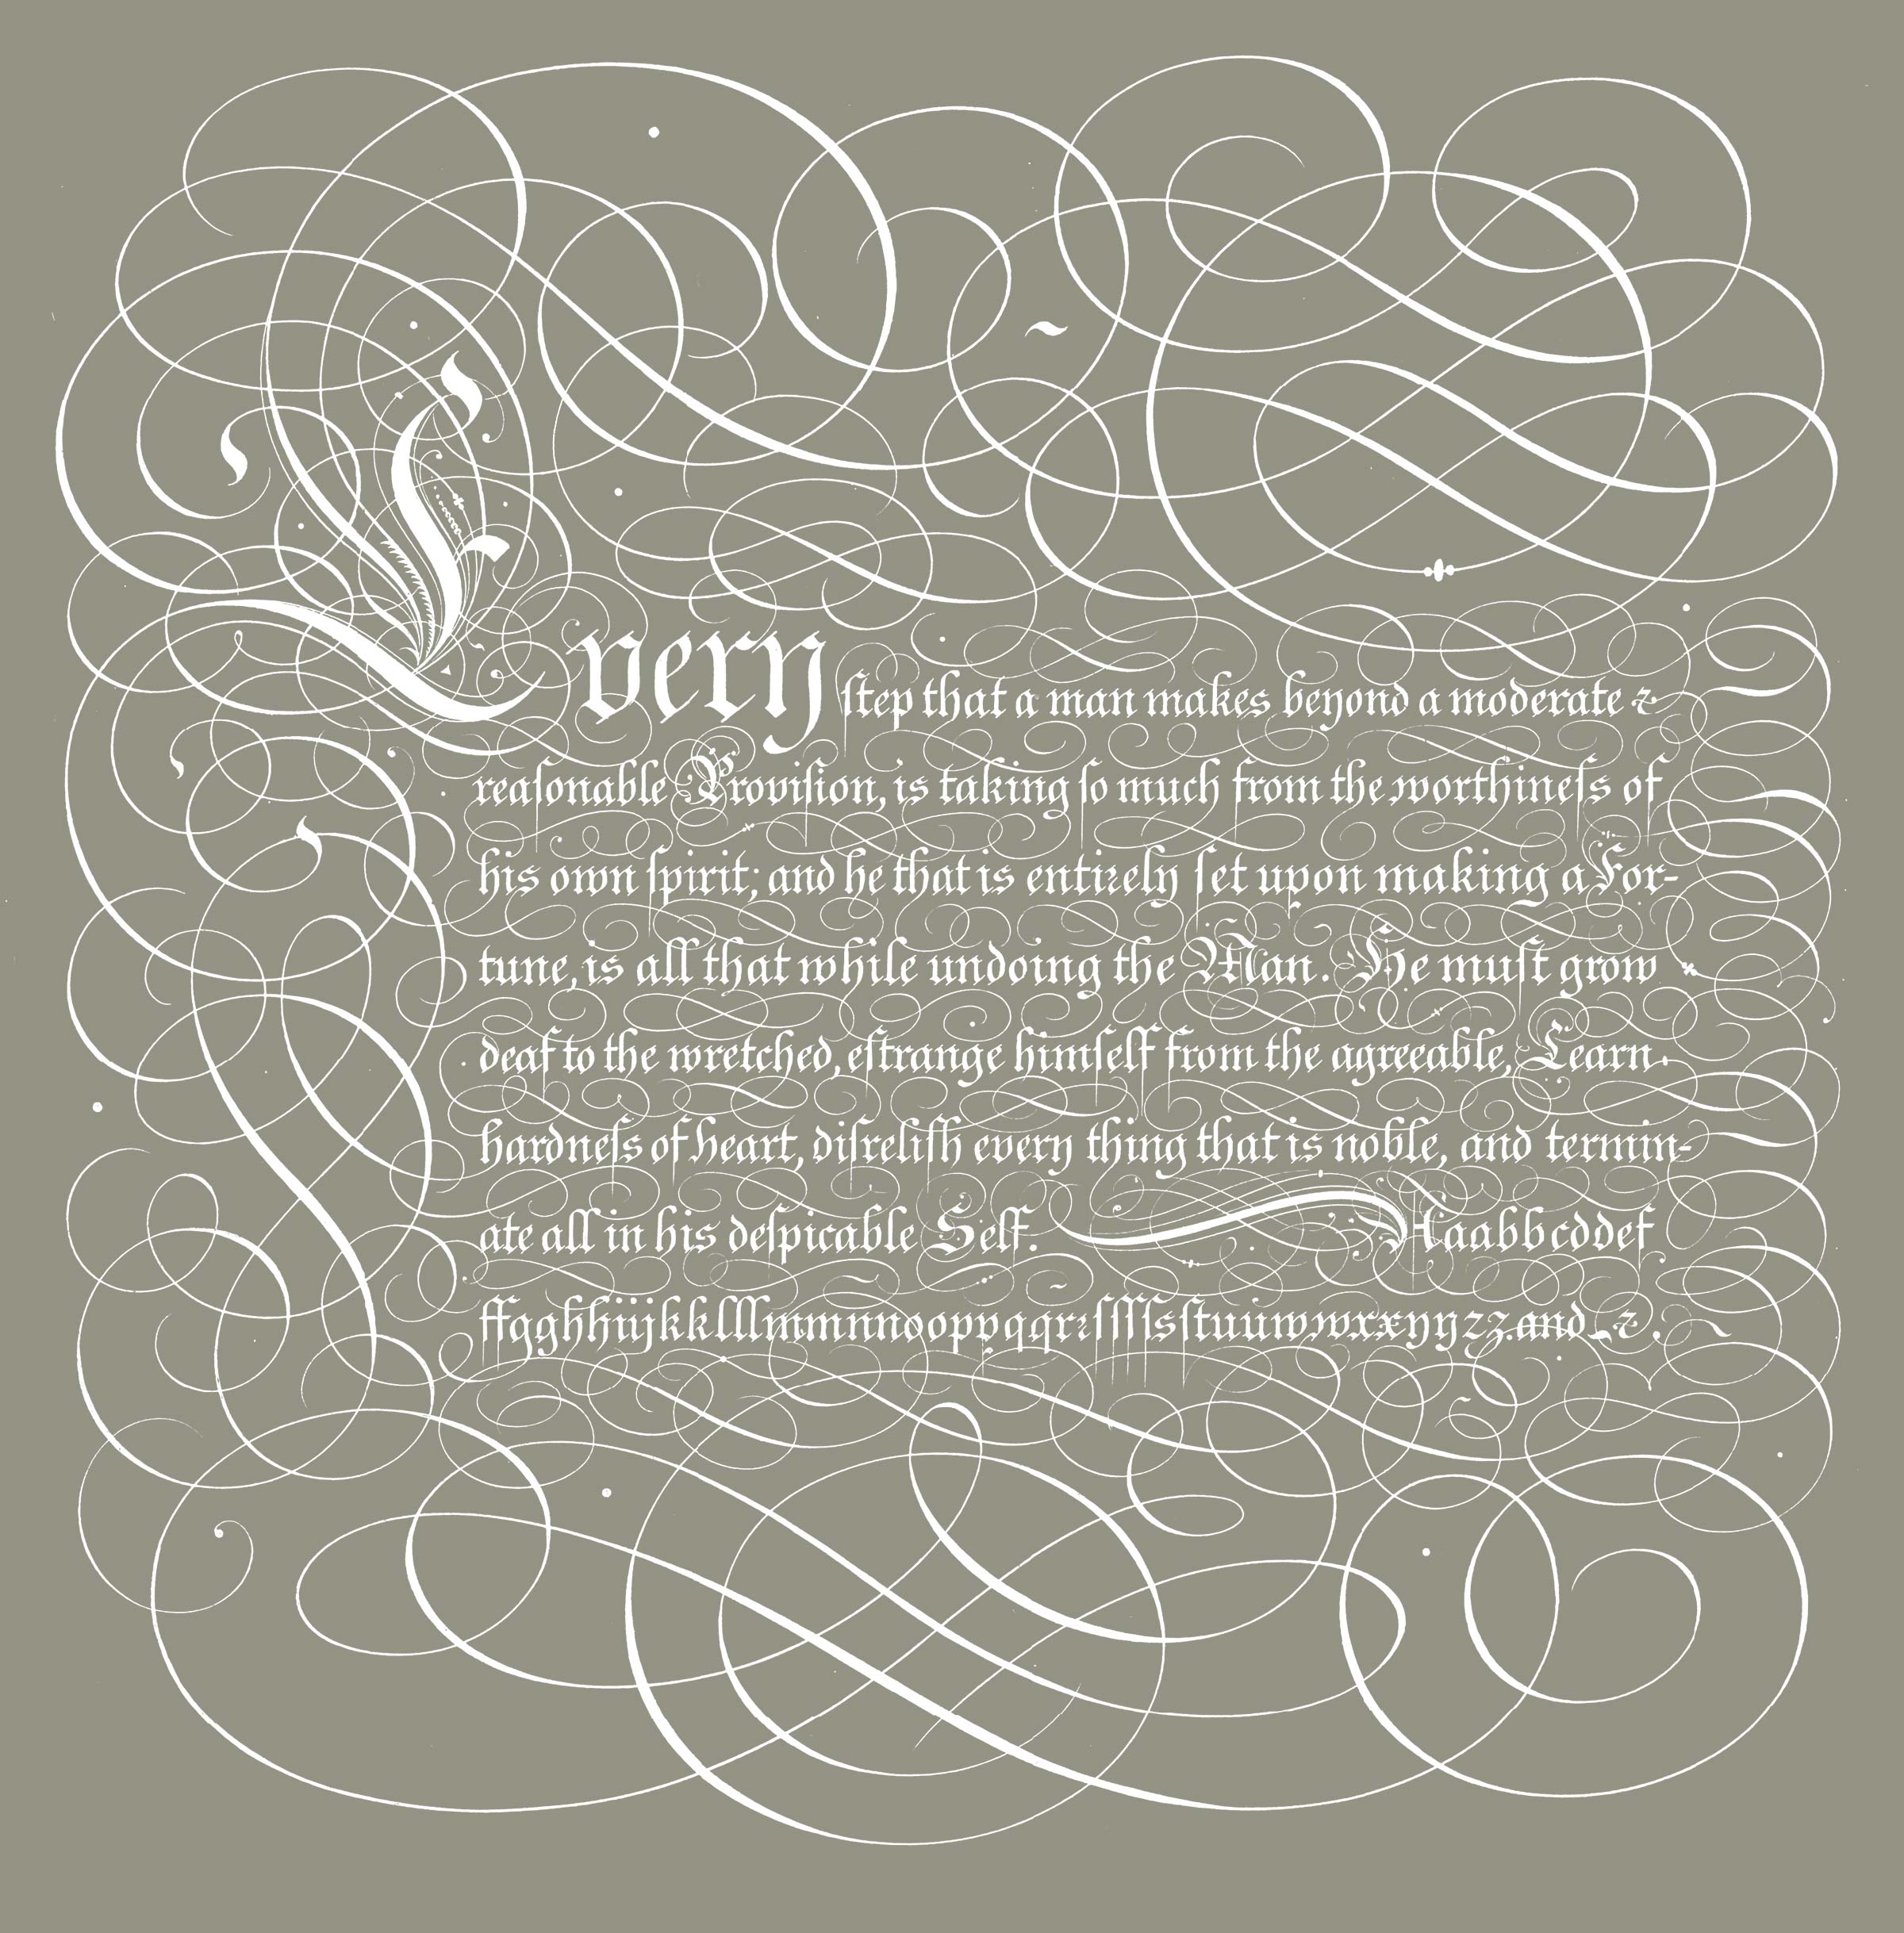 Every ſtep that a man makes beyond a moderate &
reaſonable Proviſion, is taking ſo much from the worthineſs of
his own ſpirit; and he that is entirely ſet upon making a For-
tune, is all that while undoing the Man. He muſt grow
deaf to the wretched, eſtrange himſelf from the agreeable, Learn
hardneſs of heart, diſreliſh every thing that is noble, and termin-
ate all in his deſpicable Self. Aaabbcddef
ffgghhiijkklllmmmnnnooppqqqrꝛſſſſsſtuuwwxxyyzz.and &.